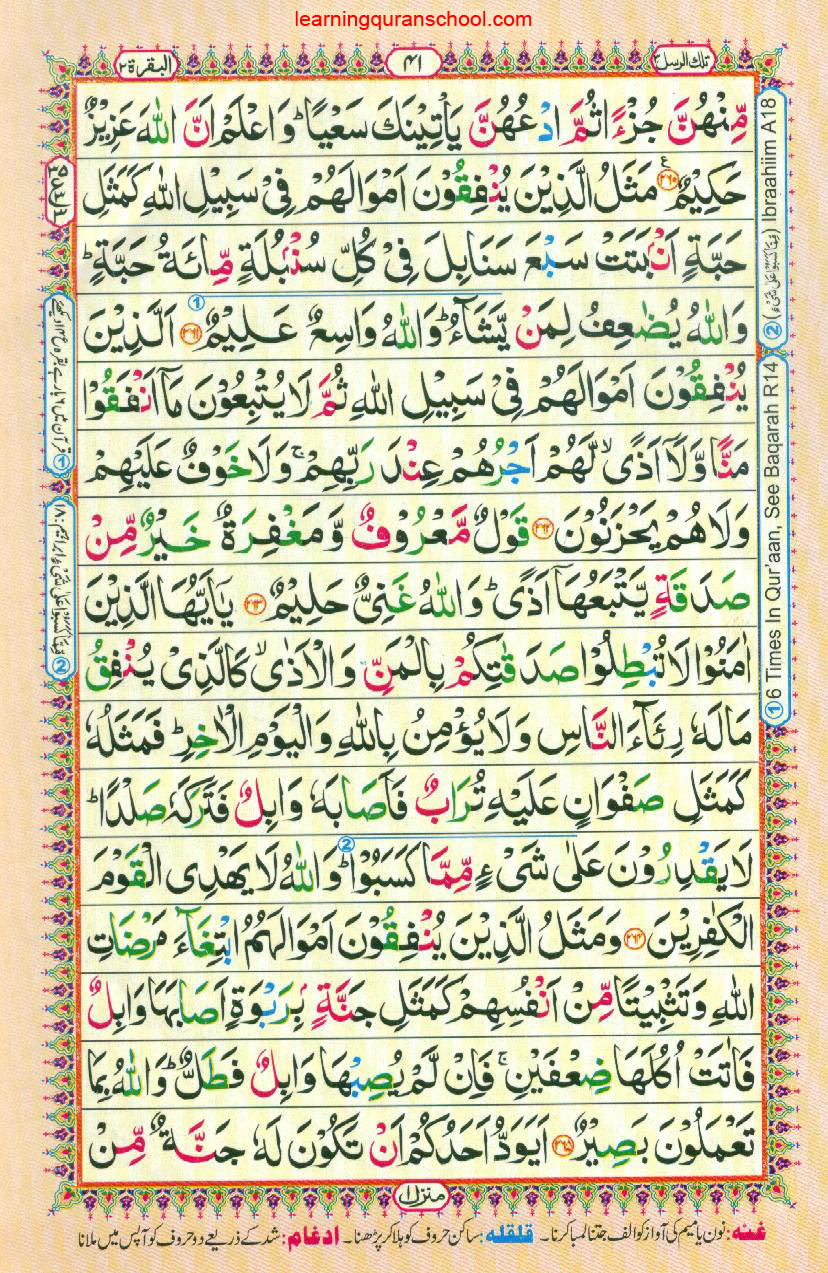 learningquranschool.com
تلك الرسل ٣
٤١
البقرة ٢
مِّنْهُنَّ جُزْءًا ثُمَّ ادْعُهُنَّ يَاْتِيْنَكَ سَعْيًا ؕ وَاعْلَمْ اَنَّ اللّٰهَ عَزِيْزٌ
حَكِيْمٌ ﴿۲۶۰﴾ مَثَلُ الَّذِيْنَ يُنْفِقُوْنَ اَمْوَالَهُمْ فِيْ سَبِيْلِ اللّٰهِ كَمَثَلِ
حَبَّةٍ اَنْۢبَتَتْ سَبْعَ سَنَابِلَ فِيْ كُلِّ سُنْۢبُلَةٍ مِّائَةُ حَبَّةٍ ؕ
وَاللّٰهُ يُضٰعِفُ لِمَنْ يَّشَآءُ ؕ وَاللّٰهُ وَاسِعٌ عَلِيْمٌ ﴿۲۶۱﴾ اَلَّذِيْنَ
يُنْفِقُوْنَ اَمْوَالَهُمْ فِيْ سَبِيْلِ اللّٰهِ ثُمَّ لَا يُتْبِعُوْنَ مَاۤ اَنْفَقُوْا
مَنًّا وَّلَاۤ اَذًى ۙ لَّهُمْ اَجْرُهُمْ عِنْدَ رَبِّهِمْ ۚ وَلَا خَوْفٌ عَلَيْهِمْ
وَلَا هُمْ يَحْزَنُوْنَ ﴿۲۶۲﴾ قَوْلٌ مَّعْرُوْفٌ وَّمَغْفِرَةٌ خَيْرٌ مِّنْ
صَدَقَةٍ يَّتْبَعُهَاۤ اَذًى ؕ وَاللّٰهُ غَنِيٌّ حَلِيْمٌ ﴿۲۶۳﴾ يٰۤاَيُّهَا الَّذِيْنَ
اٰمَنُوْا لَا تُبْطِلُوْا صَدَقٰتِكُمْ بِالْمَنِّ وَالْاَذٰى ۙ كَالَّذِيْ يُنْفِقُ
مَالَهٗ رِئَآءَ النَّاسِ وَلَا يُؤْمِنُ بِاللّٰهِ وَالْيَوْمِ الْاٰخِرِ ؕ فَمَثَلُهٗ
كَمَثَلِ صَفْوَانٍ عَلَيْهِ تُرَابٌ فَاَصَابَهٗ وَابِلٌ فَتَرَكَهٗ صَلْدًا ؕ
لَا يَقْدِرُوْنَ عَلٰى شَيْءٍ مِّمَّا كَسَبُوْا ؕ وَاللّٰهُ لَا يَهْدِي الْقَوْمَ
الْكٰفِرِيْنَ ﴿۲۶۴﴾ وَمَثَلُ الَّذِيْنَ يُنْفِقُوْنَ اَمْوَالَهُمُ ابْتِغَآءَ مَرْضَاتِ
اللّٰهِ وَتَثْبِيْتًا مِّنْ اَنْفُسِهِمْ كَمَثَلِ جَنَّةٍۭ بِرَبْوَةٍ اَصَابَهَا وَابِلٌ
فَاٰتَتْ اُكُلَهَا ضِعْفَيْنِ ۚ فَاِنْ لَّمْ يُصِبْهَا وَابِلٌ فَطَلٌّ ؕ وَاللّٰهُ بِمَا
تَعْمَلُوْنَ بَصِيْرٌ ﴿۲۶۵﴾ اَيَوَدُّ اَحَدُكُمْ اَنْ تَكُوْنَ لَهٗ جَنَّةٌ مِّنْ
① 6 Times In Qur'aan, See Baqarah R14
② (مِمَّا كَسَبُوْا عَلٰى شَيْءٍ) Ibraahiim A18
منزل ١
غنه: نون یا میم کی آواز کو الف جتنا لمبا کرنا۔ قلقله: ساکن حروف کو ہلا کر پڑھنا۔ ادغام: شد کے ذریعے دو حروف کو آپس میں ملانا